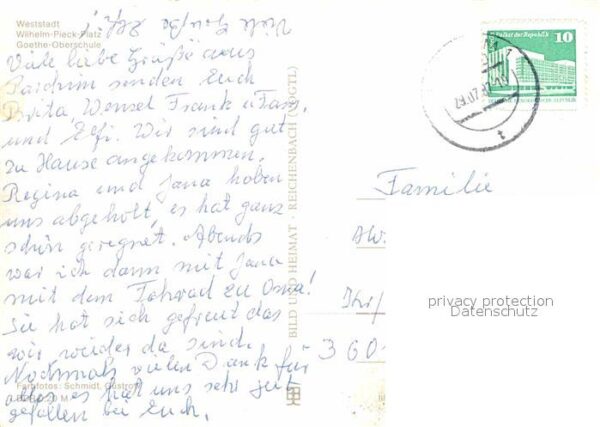 Weststadt
Wilhelm-Pieck-Platz
Goethe-Oberschule
Viele Grüße
Viele liebe Grüße aus
Parchim senden Euch
Wensel, Frank u Fam.
und Elfi. Wir sind gut
zu Hause angekommen.
Regina und Jana haben
uns abgeholt, es hat ganz
schön geregnet. Abends
war ich dann mit Jana
mit dem Fahrrad zu Oma!
Sie hat sich gefreut das
wir wieder da sind.
Nochmals vielen Dank für
alles es hat uns sehr gut
gefallen bei Euch.
Farbfotos: Schmidt, Güstrow
0,20 M
BILD UND HEIMAT · REICHENBACH (VOGTL)
Palast der Republik
10
29.07.
Familie
360
privacy protection
Datenschutz